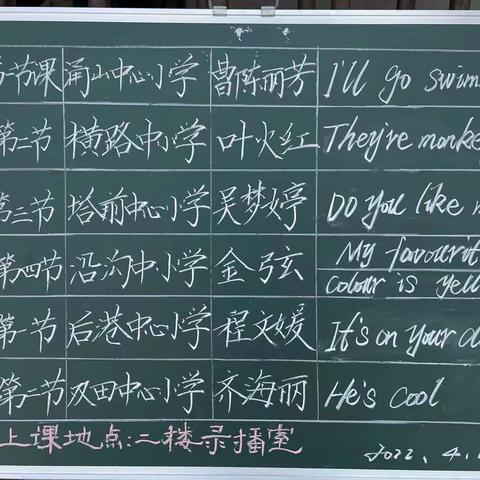 第一节课 涌山中心小学 曹陈丽芳 I'll go swim
第二节 横路中小学 叶火红 They're monke
第三节 塔前中心小学 吴梦婷 Do you like
第四节 沿沟中小学 金弦 My favourit
colour is yell
第一节 后港中心小学 程文媛 It's on your d
第二节 双田中心小学 齐海丽 He's cool
上课地点:二楼录播室 2022、4.